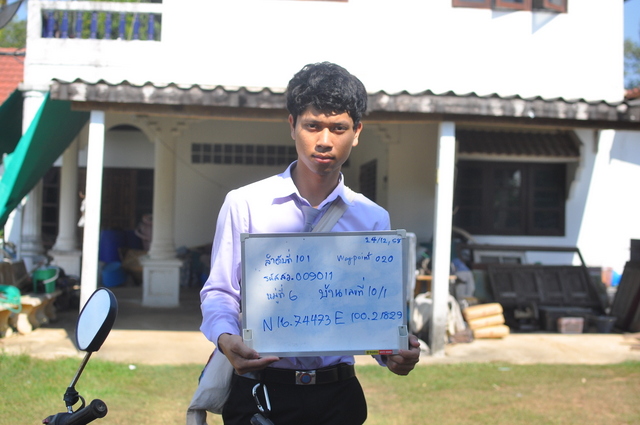 24/12/58
ลำดับที่ 101 Waypoint 020
รหัสสอ. 009011
หมู่ที่ 6 บ้านเลขที่ 10/1
N 16.74473 E 100.21829